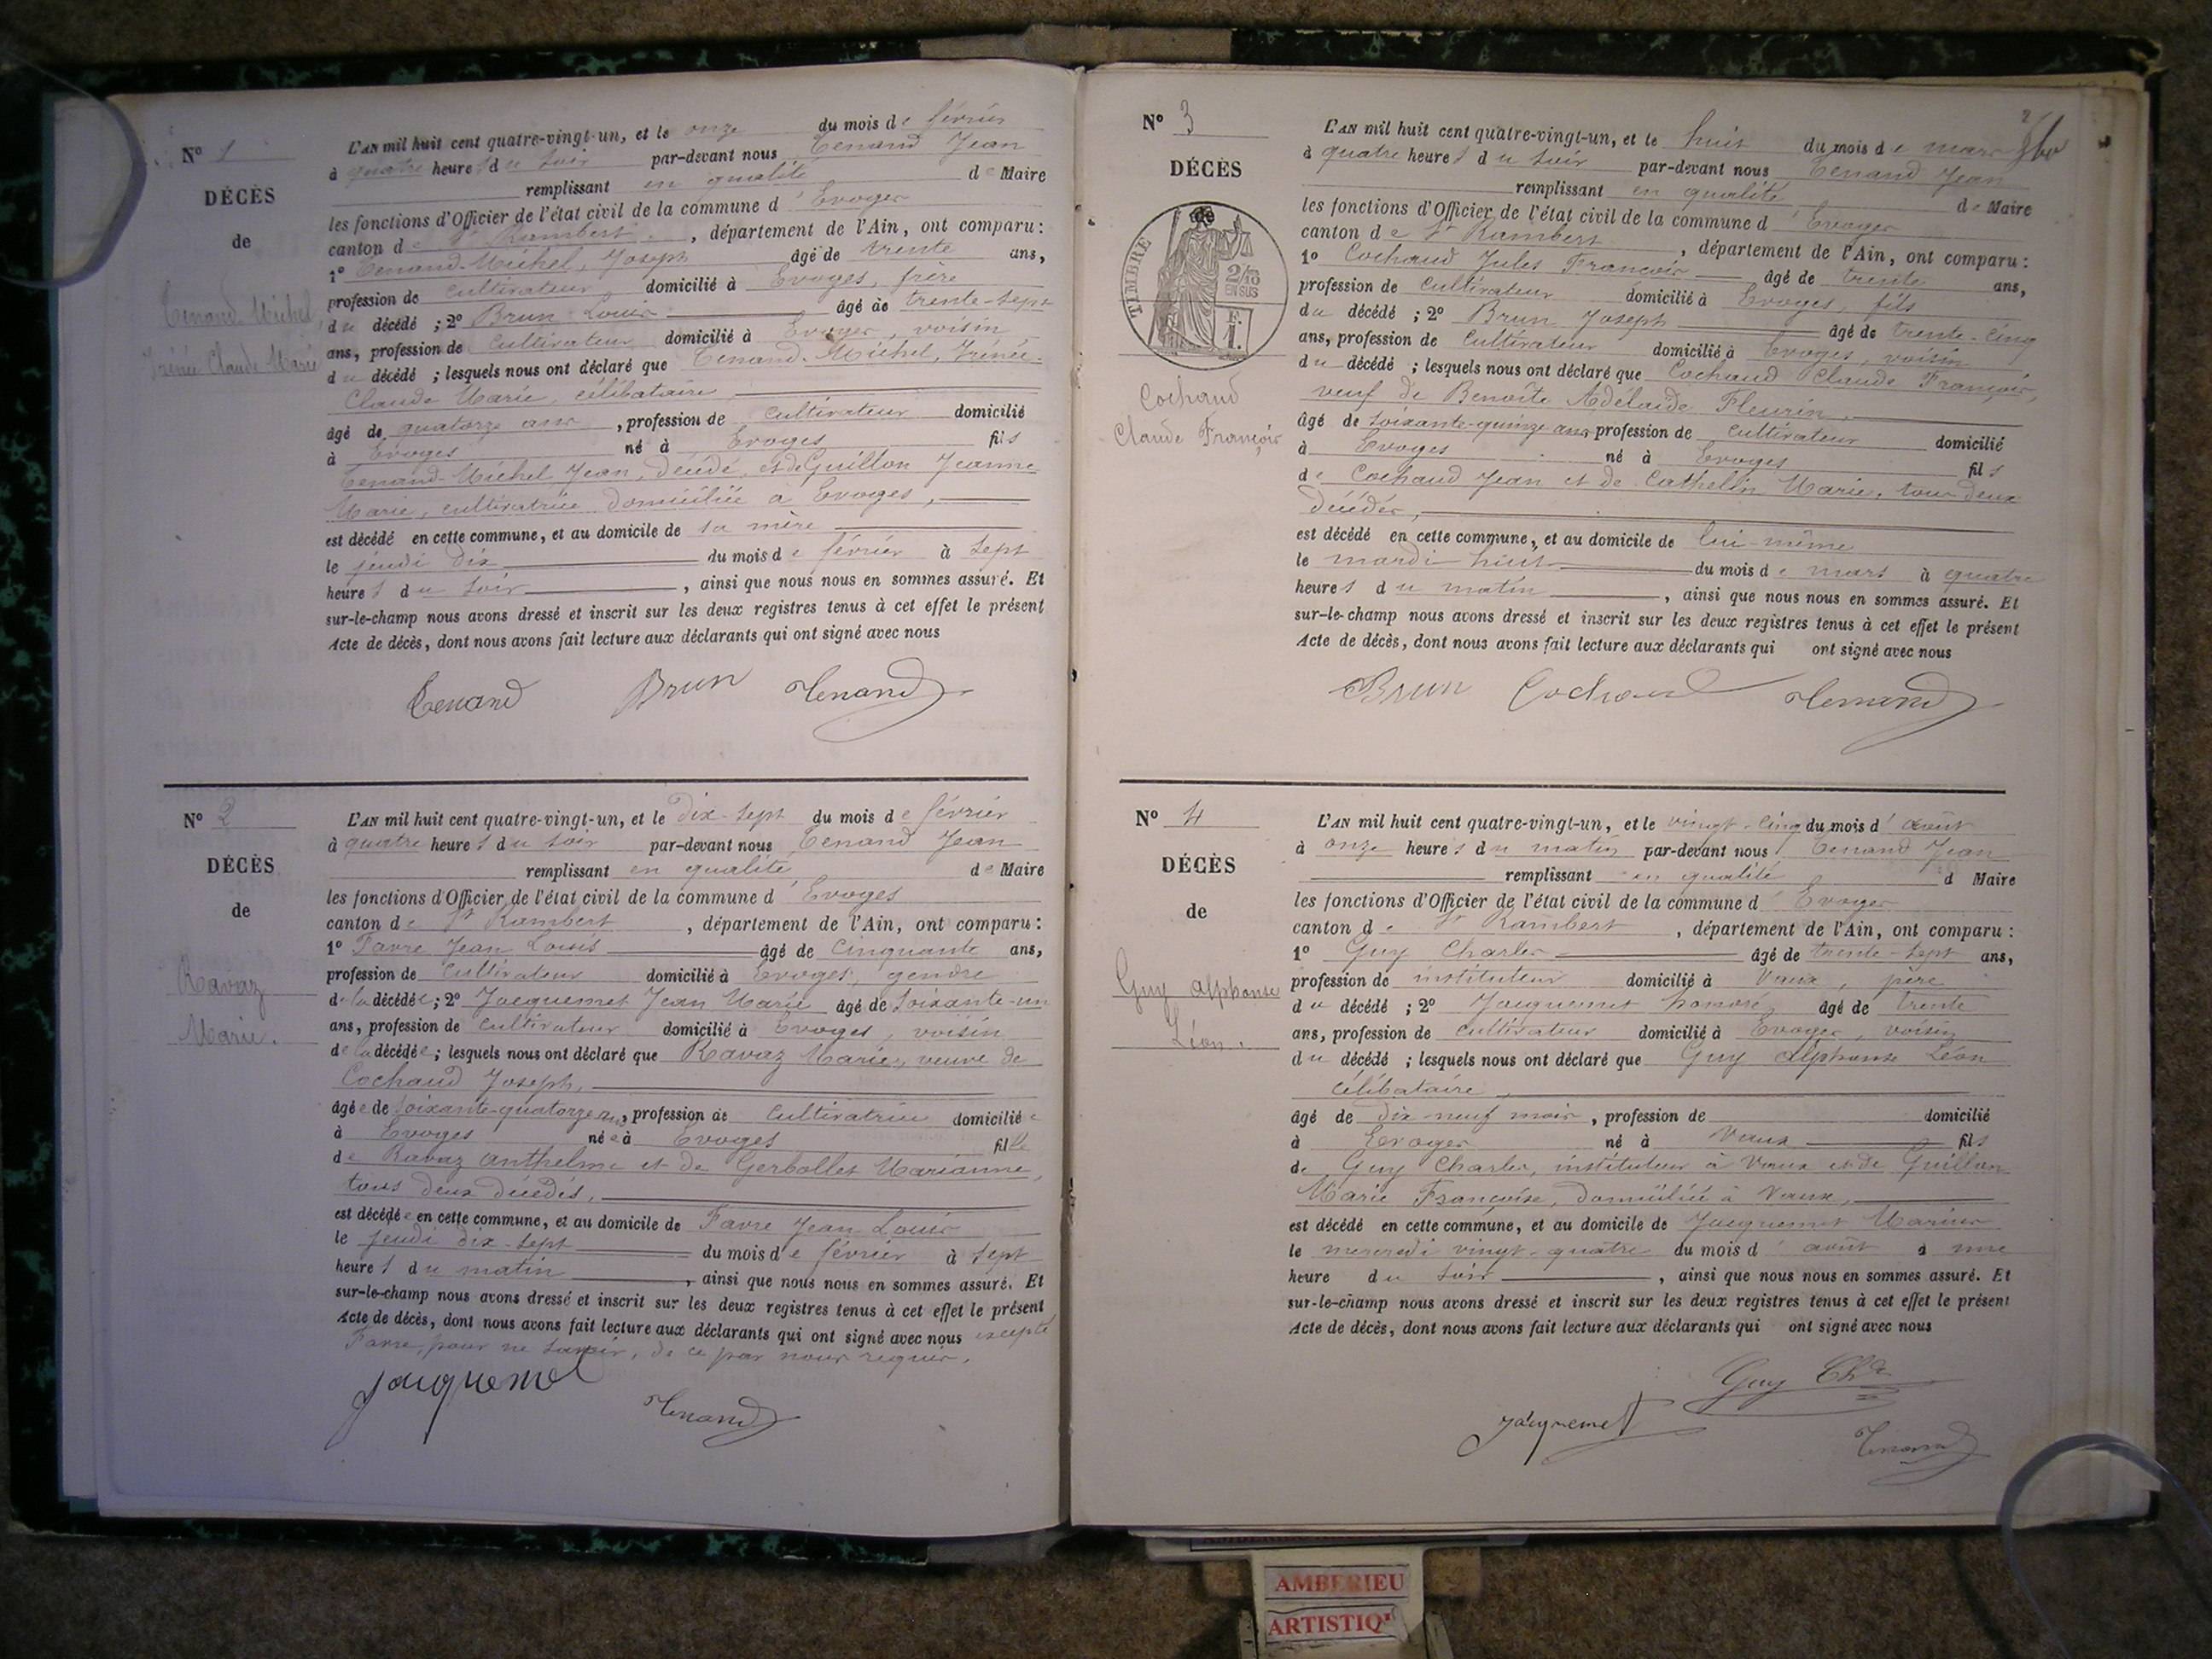 N° 1
DÉCÈS
de
Tenand-Michel,
Irénée Claude Marie
L'AN mil huit cent quatre-vingt-un, et le onze du mois de février
à quatre heures du soir par-devant nous Tenand Jean
remplissant en qualité de Maire
les fonctions d'Officier de l'état civil de la commune d'Evoges
canton de St Rambert, département de l'Ain, ont comparu :
1° Tenand-Michel, Joseph âgé de trente ans,
profession de cultivateur domicilié à Evoges, frère
du décédé ; 2° Brun Louis âgé de trente-sept
ans, profession de cultivateur domicilié à Evoges, voisin
du décédé ; lesquels nous ont déclaré que Tenand-Michel, Irénée-
Claude Marie, célibataire
âgé de quatorze ans, profession de cultivateur domicilié
à Evoges né à Evoges fils
Tenand-Michel Jean, décédé, et de Guillon Jeanne
Marie, cultivatrice domiciliée à Evoges,
est décédé en cette commune, et au domicile de sa mère
le jeudi dix du mois de février à sept
heures du soir, ainsi que nous nous en sommes assuré. Et
sur-le-champ nous avons dressé et inscrit sur les deux registres tenus à cet effet le présent
Acte de décès, dont nous avons fait lecture aux déclarants qui ont signé avec nous
Tenand Brun Tenand
N° 2
DÉCÈS
de
Ravaz
Marie.
L'AN mil huit cent quatre-vingt-un, et le dix-sept du mois de février
à quatre heures du soir par-devant nous Tenand Jean
remplissant en qualité de Maire
les fonctions d'Officier de l'état civil de la commune d'Evoges
canton de St Rambert, département de l'Ain, ont comparu :
1° Favre Jean Louis âgé de cinquante ans,
profession de cultivateur domicilié à Evoges, gendre
de la décédée ; 2° Jacquemet Jean Marie âgé de soixante-un
ans, profession de cultivateur domicilié à Evoges, voisin
de la décédée ; lesquels nous ont déclaré que Ravaz Marie, veuve de
Cochaud Joseph,
âgée de soixante-quatorze ans, profession de cultivatrice domiciliée
à Evoges née à Evoges fille
de Ravaz Anthelme et de Gerbollet Marianne,
tous deux décédés,
est décédée en cette commune, et au domicile de Favre Jean Louis
le jeudi dix-sept du mois de février à sept
heures du matin, ainsi que nous nous en sommes assuré. Et
sur-le-champ nous avons dressé et inscrit sur les deux registres tenus à cet effet le présent
Acte de décès, dont nous avons fait lecture aux déclarants qui ont signé avec nous excepté
Favre, pour ne savoir, de ce par nous requis.
Jacquemet Tenand
2
N° 3
DÉCÈS
de
TIMBRE
2/10
EN SUS
F.
1.
Cochaud
Claude François
L'AN mil huit cent quatre-vingt-un, et le huit du mois de mars
à quatre heures du soir par-devant nous Tenand Jean
remplissant en qualité de Maire
les fonctions d'Officier de l'état civil de la commune d'Evoges
canton de St Rambert, département de l'Ain, ont comparu :
1° Cochaud Jules François âgé de trente ans,
profession de cultivateur domicilié à Evoges, fils
du décédé ; 2° Brun Joseph âgé de trente-cinq
ans, profession de cultivateur domicilié à Evoges, voisin
du décédé ; lesquels nous ont déclaré que Cochaud Claude François,
veuf de Benoîte Adélaïde Fleurin,
âgé de soixante-quinze ans, profession de cultivateur domicilié
à Evoges né à Evoges fils
de Cochaud Jean et de Cathellin Marie, tous deux
décédés,
est décédé en cette commune, et au domicile de lui-même
le mardi huit du mois de mars à quatre
heures du matin, ainsi que nous nous en sommes assuré. Et
sur-le-champ nous avons dressé et inscrit sur les deux registres tenus à cet effet le présent
Acte de décès, dont nous avons fait lecture aux déclarants qui ont signé avec nous
Brun Cochaud Tenand
N° 4
DÉCÈS
de
Guy Alphonse
Léon.
L'AN mil huit cent quatre-vingt-un, et le vingt-cinq du mois d'août
à onze heures du matin par-devant nous Tenand Jean
remplissant en qualité d Maire
les fonctions d'Officier de l'état civil de la commune d'Evoges
canton de St Rambert, département de l'Ain, ont comparu :
1° Guy Charles âgé de trente-sept ans,
profession de instituteur domicilié à Vaux, père
du décédé ; 2° Jacquemet honoré âgé de trente
ans, profession de cultivateur domicilié à Evoges, voisin
du décédé ; lesquels nous ont déclaré que Guy Alphonse Léon
célibataire,
âgé de dix-neuf mois, profession de domicilié
à Evoges né à Vaux fils
de Guy Charles, instituteur à Vaux et de Guillon
Marie Françoise, domiciliée à Vaux,
est décédé en cette commune, et au domicile de Jacquemet Marius
le mercredi vingt-quatre du mois d'août à une
heure du soir, ainsi que nous nous en sommes assuré. Et
sur-le-champ nous avons dressé et inscrit sur les deux registres tenus à cet effet le présent
Acte de décès, dont nous avons fait lecture aux déclarants qui ont signé avec nous
Guy Chs
Jacquemet
Tenand
AMBERIEU
ARTISTIQ